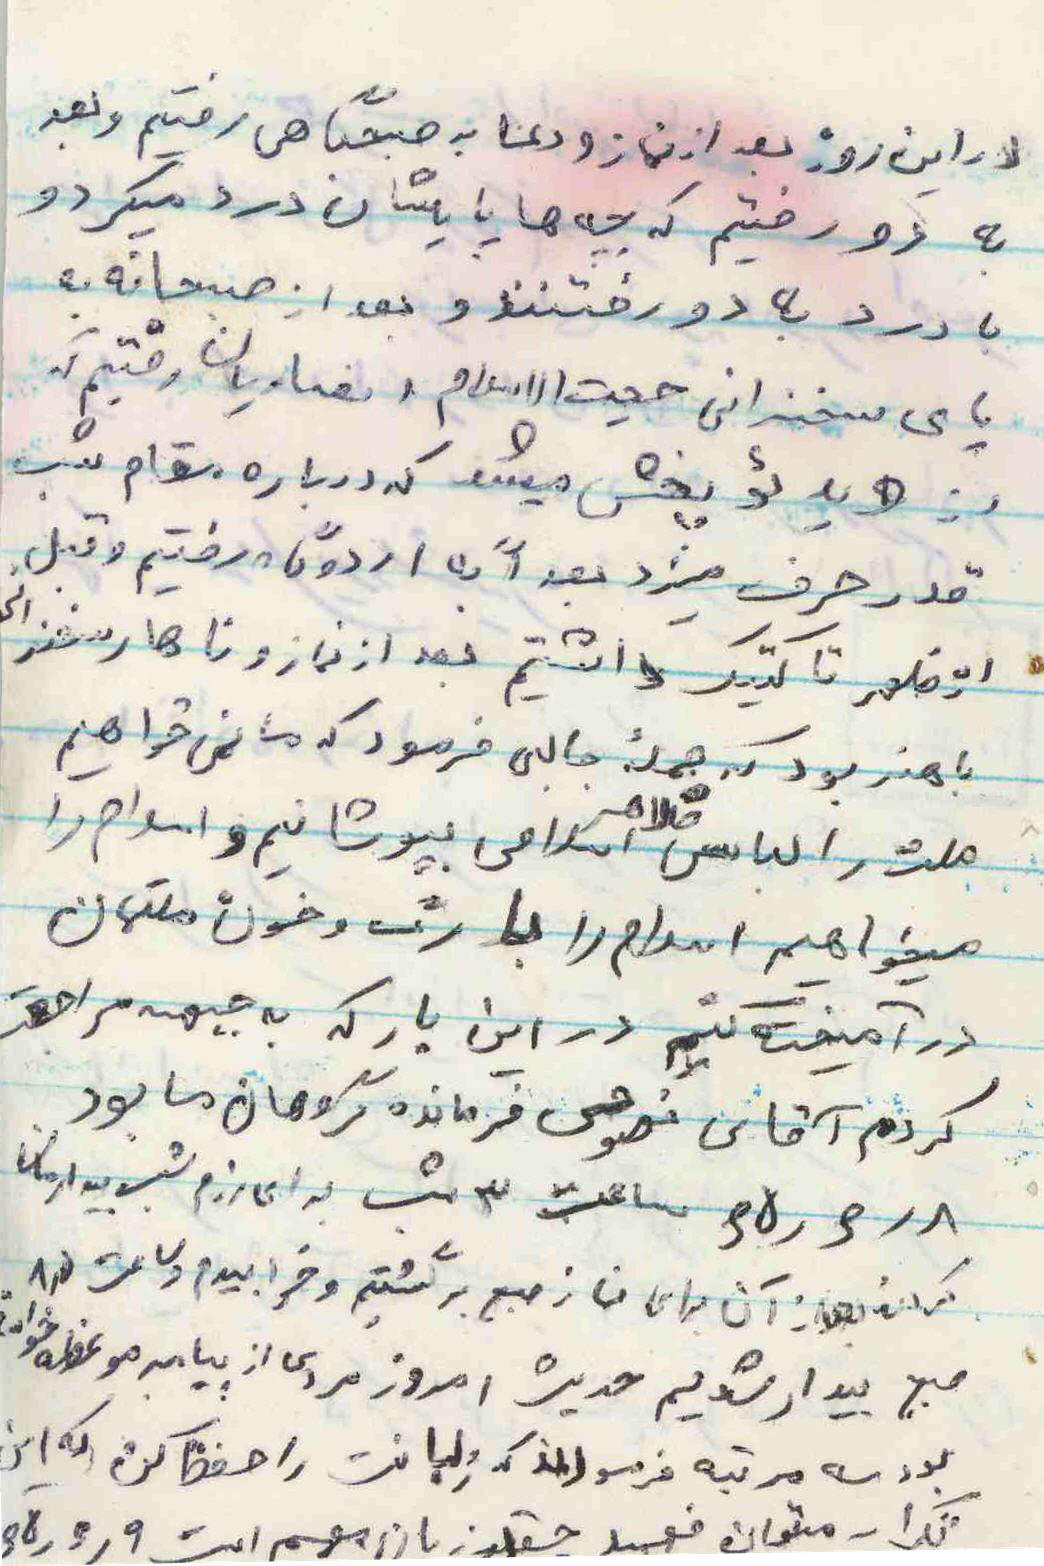 در این روز بعد از نماز و دعا به صبحگاهی رفتیم و بعد
به دو رفتیم که بچه ها پا یشان درد میکرد و
با درد به دو رفتند و بعد از صبحانه به
پای سخنرانی حجت الاسلام انصاریان رفتیم که
از ویدئو پخش میشد که درباره مقام شب
قدر حرف میزد بعد آن به اردوگاه رفتیم و قبل
از ظهر تاکتیک داشتیم بعد از نماز و ناهار سخنرانی
با هنر بود که جملهٔ جالبی فرمود که ما نمی خواهیم
ملت را لباس ظاهر اسلامی بپوشانیم و اسلام را
میخواهیم اسلام را با رگ و خون ملتمان
در آمیخته کنیم در این بار که به جبهه مراجعت
کردم آقای نصوحی فرمانده گروهان ما بود
ساعت ۳ شب برای رزم شب بیدارمان
کردند بعد از آن برای نماز صبح برگشتیم و خوابیدیم و ساعت ۸
صبح بیدار شدیم حدیث امروز مردی از پیامبر موعظه خواسته
بود سه مرتبه فرمودند که زبانت را حفظ کن که این
تکرار میتوان فهمید چقدر زبان مهم است